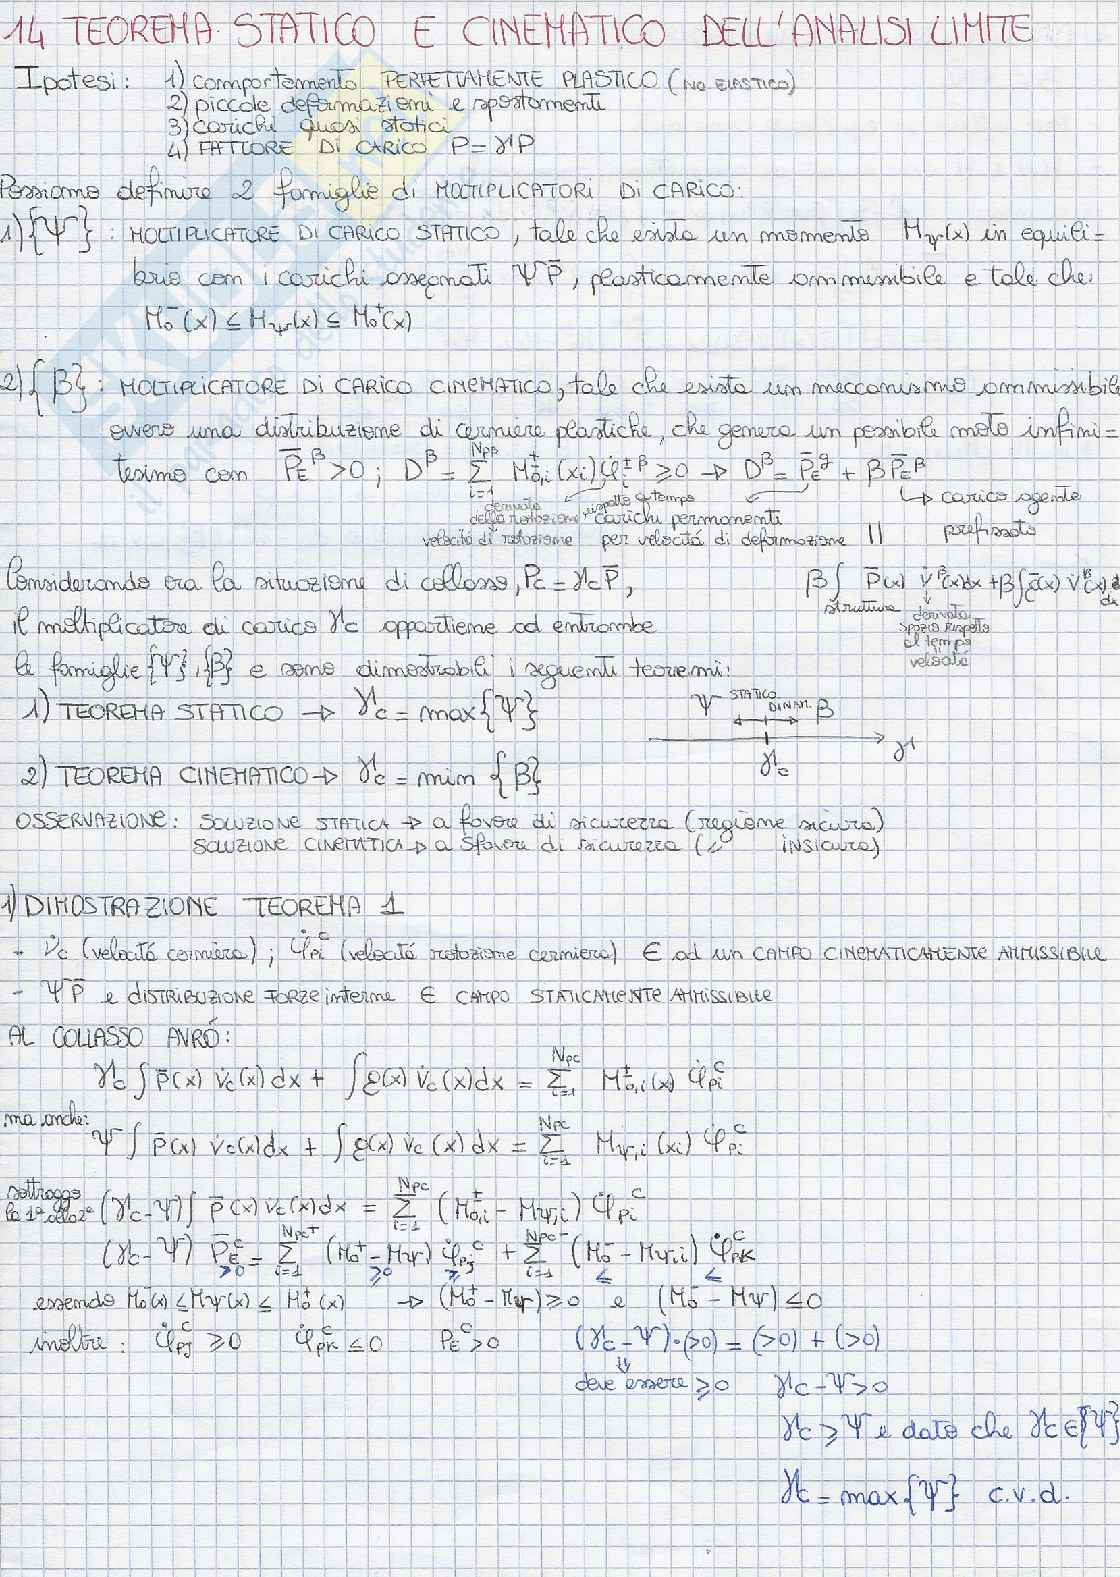 14 TEOREMA STATICO E CINEMATICO DELL'ANALISI LIMITE
Ipotesi: 1) comportamento PERFETTAMENTE PLASTICO (NO ELASTICO)
2) piccole deformazioni e spostamenti
3) carichi quasi statici
4) FATTORE DI CARICO P = γP
Possiamo definire 2 famiglie di MOLTIPLICATORI DI CARICO:
1) {Ψ} : MOLTIPLICATORE DI CARICO STATICO, tale che esista un momento MΨ(x) in equili=
brio con i carichi assegnati ΨP̄, plasticamente ammissibile e tale che:
M₀⁻(x) ≤ MΨ(x) ≤ M₀⁺(x)
2) {β} : MOLTIPLICATORE DI CARICO CINEMATICO, tale che esista un meccanismo ammissibile
ovvero una distribuzione di cerniere plastiche, che genera un possibile moto infini=
tesimo con P̄_E^β > 0 ; D^β = Σ_{i=1}^{Npβ} M^±_{0,i}(xi) φ̇_i^{±β} ≥ 0 → D^β = P̄_E^g + β P̄_E^β
derivata della rotazione rispetto a tempo
velocità di rotazione
carichi permanenti
per velocità di deformazione
↳ carico agente
prefissato
Considerando ora la situazione di collasso, Pc = γc P̄,
β∫ p̄(x) v̇^β(x)dx + β∫
struttura
derivata
spazio rispetto
al tempo
velocità
il moltiplicatore di carico γc appartiene ad entrambe
le famiglie {Ψ}, {β} e sono dimostrabili i seguenti teoremi:
1) TEOREMA STATICO → γc = max{Ψ}
Ψ STATICO
DINAM. β
γc
γ
2) TEOREMA CINEMATICO → γc = min {β}
OSSERVAZIONE: SOLUZIONE STATICA → a favore di sicurezza (regione sicura)
SOLUZIONE CINEMATICA → a sfavore di sicurezza (" INSICURA)
1) DIMOSTRAZIONE TEOREMA 1
- v̇c (velocità cerniera) ; φ̇_pi^c (velocità rotazione cerniera) ∈ ad un CAMPO CINEMATICAMENTE AMMISSIBILE
- ΨP̄ e DISTRIBUZIONE FORZE interne ∈ CAMPO STATICAMENTE AMMISSIBILE
AL COLLASSO AVRÓ:
γc ∫ p̄(x) v̇c(x) dx + ∫ g(x) v̇c(x)dx = Σ_{i=1}^{Npc} M^±_{0,i}(x) φ̇_pi^c
ma anche:
Ψ ∫ p̄(x) v̇c(x)dx + ∫ g(x) v̇c(x) dx = Σ_{i=1}^{Npc} M_{Ψ,i}(xi) φ̇_pi^c
sottraggo
la 1ª alla 2ª (γc-Ψ) ∫ p̄(x) v̇c(x)dx = Σ_{i=1}^{Npc} (M^±_{0,i} - M_{Ψ,i}) φ̇_pi^c
(γc-Ψ) P̄_E^c = Σ_{i=1}^{Npc⁺} (M₀⁺ - MΨ) φ̇_pj^c + Σ_{i=1}^{Npc⁻} (M₀⁻ - MΨ,i) φ̇_pk^c
>0 ≥0 ≥ ≤ ≤
essendo M₀⁻(x) ≤ MΨ(x) ≤ M₀⁺(x) → (M₀⁺ - MΨ) ≥ 0 e (M₀⁻ - MΨ) ≤ 0
inoltre: φ̇_pj^c ≥ 0 φ̇_pk^c ≤ 0 P_E^c > 0 (γc - Ψ)·(>0) = (>0) + (>0)
⇓
deve essere ≥ 0 γc - Ψ > 0
γc ≥ Ψ e dato che γc ∈ {Ψ}
γc = max{Ψ} c.v.d.